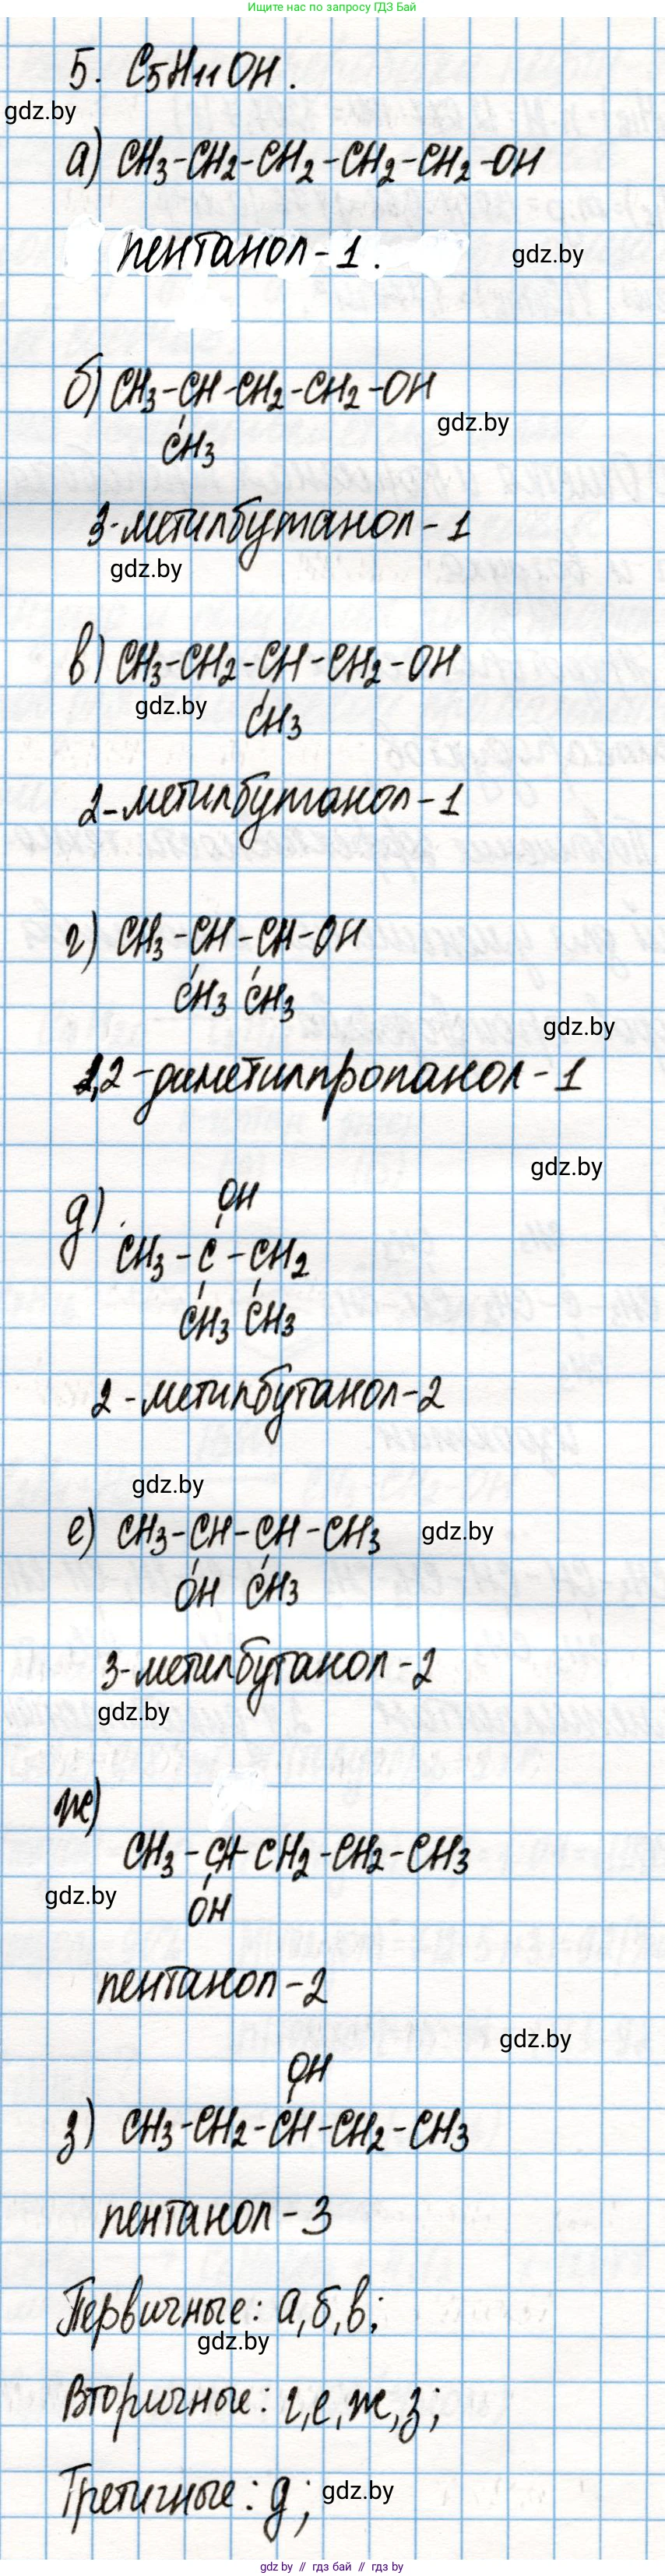 Ищите нас по запросу ГДЗ Бай
5. C5H11OH.
gdz.by
а) CH3-CH2-CH2-CH2-CH2-OH
пентанол-1.
gdz.by
б) CH3-CH-CH2-CH2-OH
gdz.by
CH3
3-метилбутанол-1
gdz.by
в) CH3-CH2-CH-CH2-OH
gdz.by
CH3
2-метилбутанол-1
г) CH3-CH-CH-OH
CH3 CH3
gdz.by
2,2-диметилпропанол-1
gdz.by
OH
д) CH3-C-CH2
CH3 CH3
2-метилбутанол-2
gdz.by
е) CH3-CH-CH-CH3
gdz.by
OH CH3
3-метилбутанол-2
gdz.by
ж)
CH3-CH-CH2-CH2-CH3
gdz.by
OH
пентанол-2
gdz.by
OH
з) CH3-CH2-CH-CH2-CH3
пентанол-3
Первичные: а,б,в;
gdz.by
Вторичные: г,е,ж,з;
Третичные: д;
gdz.by
gdz.by // гдз бай // gdz.by